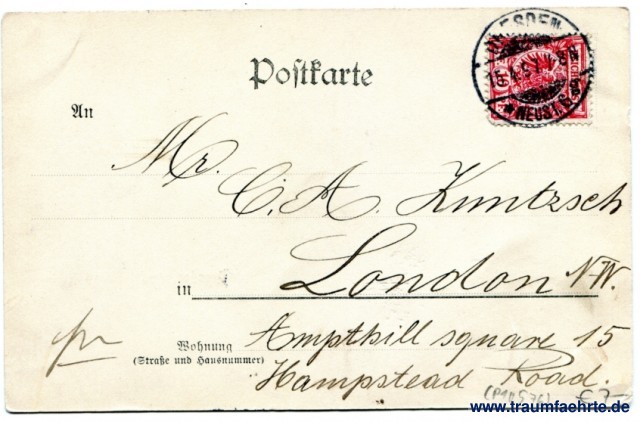 Postkarte
DRESDEN
NEUST.
An
Mr.
C. A. Kuntzsch
in London N.W.
Wohnung
(Straße und Hausnummer)
Ampthill square 15
Hampstead Road.
www.traumfaehrte.de